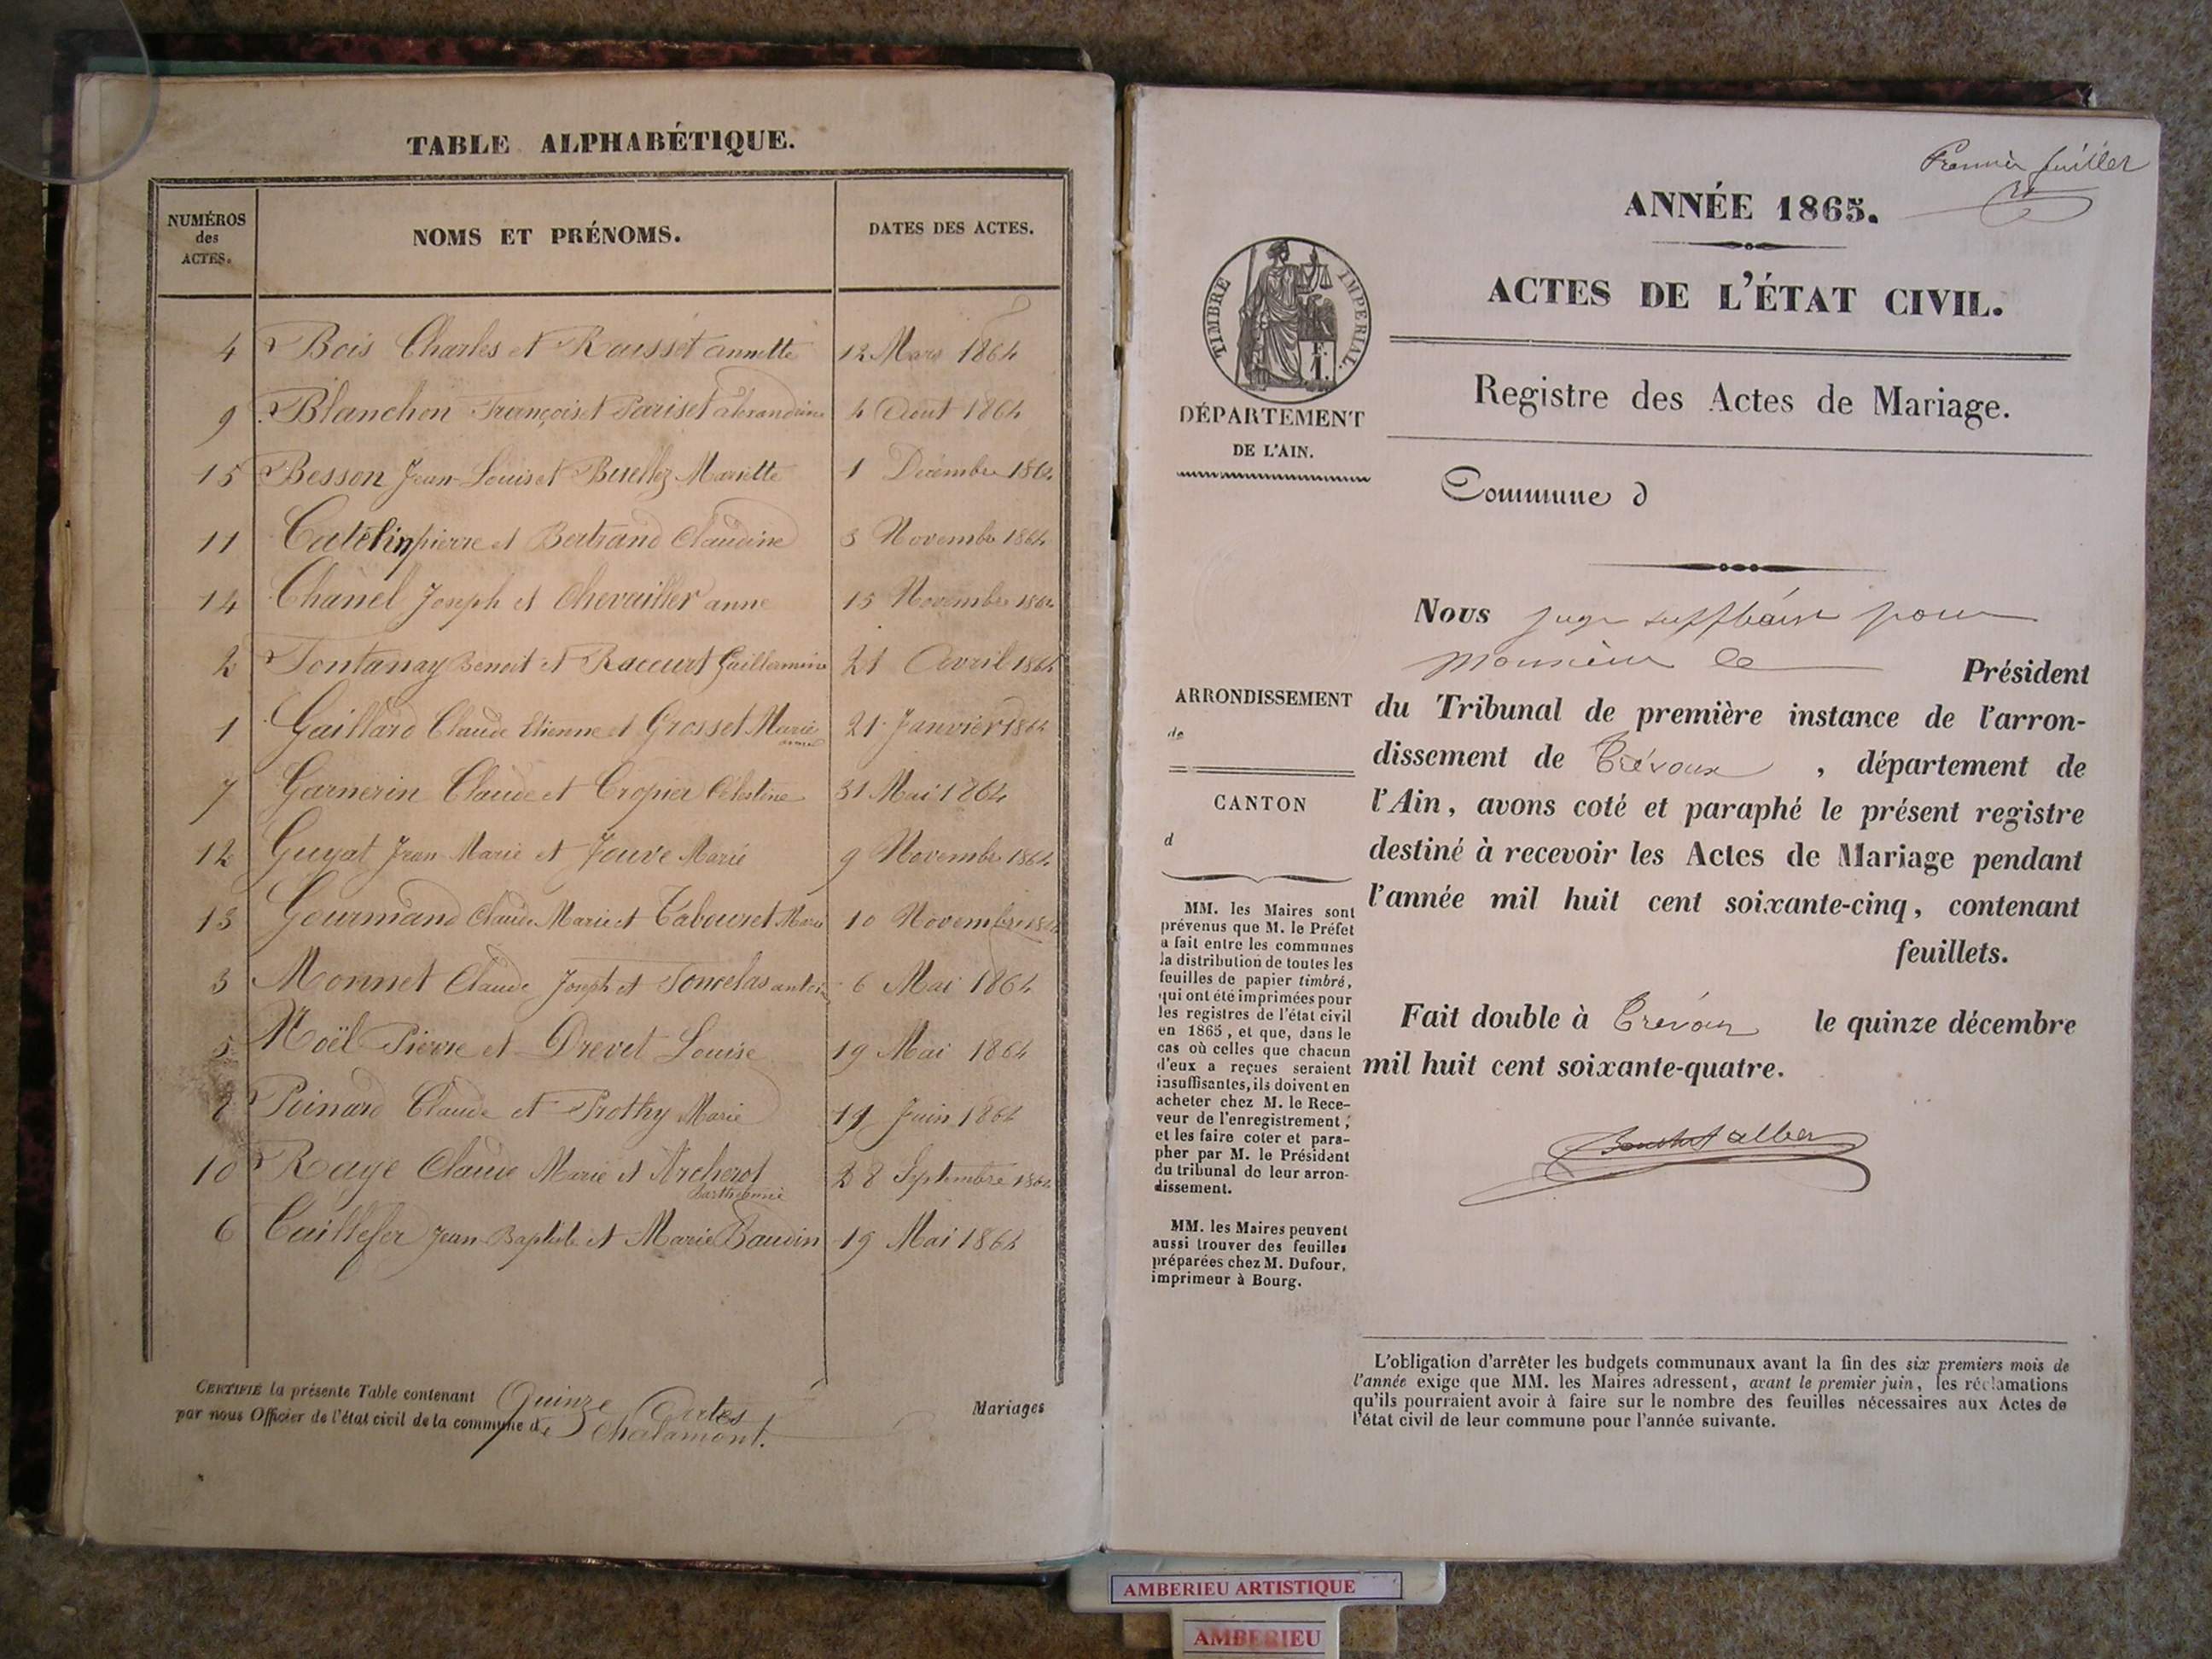 TABLE ALPHABÉTIQUE.
NUMÉROS des ACTES.
NOMS ET PRÉNOMS.
DATES DES ACTES.
4 Bois Charles et Rousset annette 12 Mars 1864
9 Blanchon François et Pariset alexandrine 4 Aout 1864
15 Besson Jean-Louis et Mariette 1 Décembre 1864
11 Catelin pierre et Bertrand Claudine 3 Novembre 1864
14 Chanel Joseph et Chevailler anne 15 Novembre 1864
2 Fontanay Benoit et Raccurt Guillermine 21 Avril 1864
1 Gaillard Claude Etienne et Grosset Marie 21 Janvier 1864
7 Garnerin Claude et Cropier Célestine 31 Mai 1864
12 Guyat Jean Marie et Jouve Marie 9 Novembre 1864
13 Gourmand Claude Marie et Tabouret Marie 10 Novembre 1864
3 Monnet Claude Joseph et 6 Mai 1864
5 Noël Pierre et Drevet Louise 19 Mai 1864
8 Poinard Claude et Prothy Marie 14 Juin 1864
10 Raye Claude Marie et Archerot 28 Septembre 1864
6 Taillefer Jean Baptiste et Marie Baudin 19 Mai 1864
CERTIFIÉ la présente Table contenant Quinze Actes Mariages
par nous Officier de l'état civil de la commune de Chalamont.
Premier feuillet
ANNÉE 1865.
ACTES DE L'ÉTAT CIVIL.
TIMBRE IMPÉRIAL.
Registre des Actes de Mariage.
DÉPARTEMENT
DE L'AIN.
Commune d
Nous juge suppléant pour
monsieur le Président
du Tribunal de première instance de l'arron-
dissement de Trévoux , département de
l'Ain, avons coté et paraphé le présent registre
destiné à recevoir les Actes de Mariage pendant
l'année mil huit cent soixante-cinq, contenant
feuillets.
Fait double à Trévoux le quinze décembre
mil huit cent soixante-quatre.
ARRONDISSEMENT
de
CANTON
d
MM. les Maires sont
prévenus que M. le Préfet
a fait entre les communes
la distribution de toutes les
feuilles de papier timbré,
qui ont été imprimées pour
les registres de l'état civil
en 1865, et que, dans le
cas où celles que chacun
d'eux a reçues seraient
insuffisantes, ils doivent en
acheter chez M. le Rece-
veur de l'enregistrement,
et les faire coter et para-
pher par M. le Président
du tribunal de leur arron-
dissement.
MM. les Maires peuvent
aussi trouver des feuilles
préparées chez M. Dufour,
imprimeur à Bourg.
L'obligation d'arrêter les budgets communaux avant la fin des six premiers mois de
l'année exige que MM. les Maires adressent, avant le premier juin, les réclamations
qu'ils pourraient avoir à faire sur le nombre des feuilles nécessaires aux Actes de
l'état civil de leur commune pour l'année suivante.
AMBERIEU ARTISTIQUE
AMBERIEU